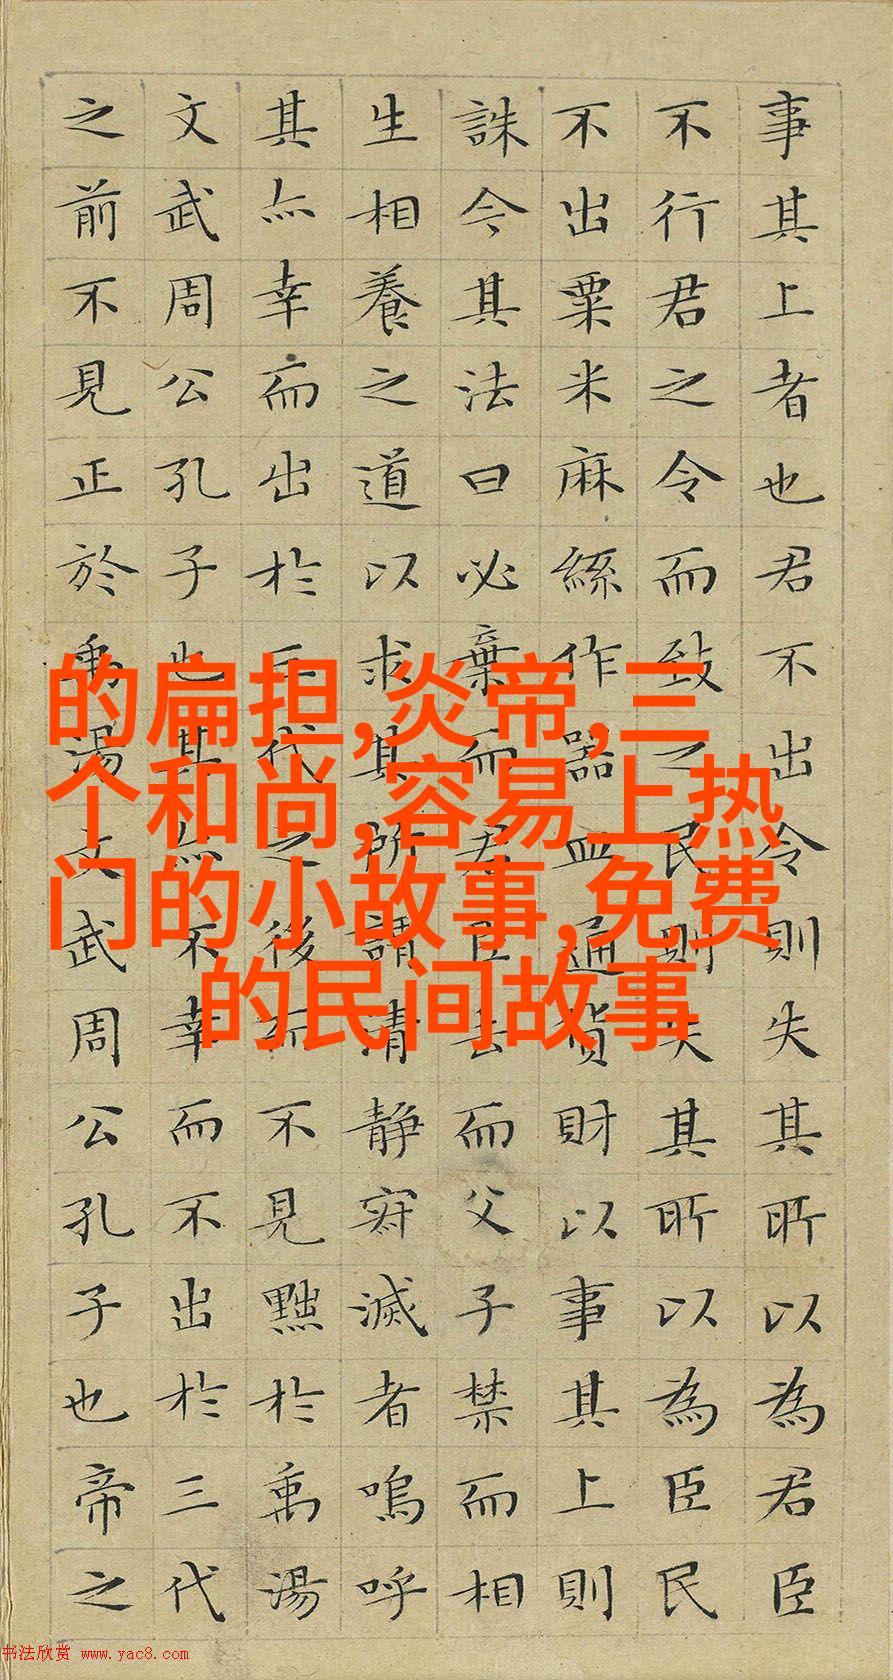 事其上者也君不出令則失其所以為君臣
不行君之令而致之民則失其所以為臣民
不出粟米麻絲作器皿通貨財以事其上則
誅今其法曰必棄而君臣去而父子禁而相
生相養之道以求其所謂清静寂滅者嗚呼
其亦幸而出於三代之後而不見黜於禹湯
文武周公孔子也其亦不幸而不出於三代
之前不見正於禹湯文武周公孔子也帝之
的扁担,炎帝,三
个和尚,容易上热
门的小故事,免费
的民间故事
书法欣赏 www.yac8.com